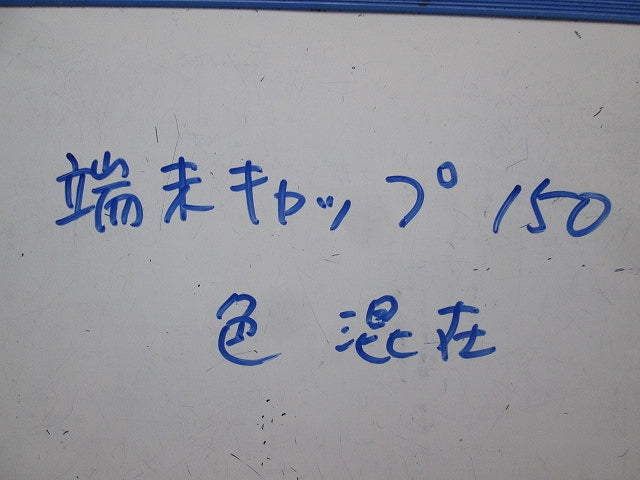 端末キャップ 150
色 混在